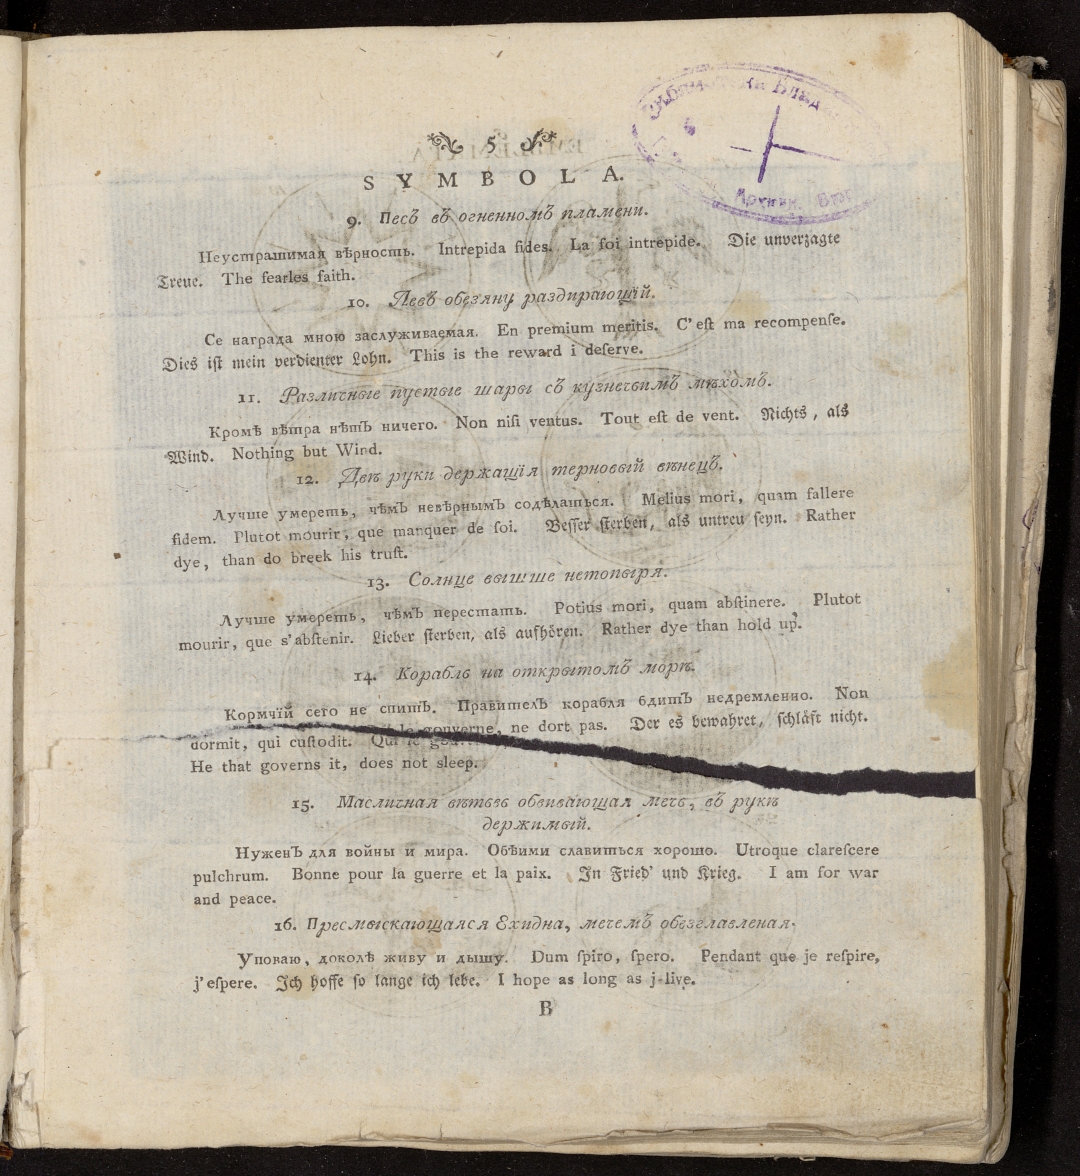 5
SYMBOLA.
9. Песъ въ огненномъ пламени.
Неустрашимая вѣрность. Intrepida fides. La foi intrepide. Die unverzagte
Treue. The fearleſ faith.
10. Левъ обезяну раздирающїй.
Се награда мною заслуживаемая. En premium meritis. C'eſt ma recompenſe.
Dies iſt mein verdienter Lohn. This is the reward i deſerve.
11. Различные пустые шары съ кузнечьимъ мѣхомъ.
Кромѣ вѣтра нѣтъ ничего. Non niſi ventus. Tout eſt de vent. Nichts, als
Wind. Nothing but Wind.
12. Двѣ руки держащїя терновый вѣнецъ.
Лучше умереть, чѣмъ невѣрнымъ содѣлаться. Melius mori, quam fallere
fidem. Plutot mourir, que manquer de foi. Beſſer ſterben, als untreu ſeyn. Rather
dye, than do breek his truſt.
13. Солнце вышше нетопыря.
Лучше умереть, чѣмъ перестать. Potius mori, quam abſtinere. Plutot
mourir, que s'abſtenir. Lieber ſterben, als aufhören. Rather dye than hold up.
14. Корабль на открытомъ морѣ.
Кормчїй сего не спитъ. Правитель корабля бдитъ недремленно. Non
dormit, qui cuſtodit. Qui le gouverne, ne dort pas. Der es bewahret, ſchläft nicht.
He that governs it, does not sleep.
15. Масличная вѣтвь обвивающая мечь, въ рукѣ
держимый.
Нуженъ для войны и мира. Обѣими славиться хорошо. Utroque clareſcere
pulchrum. Bonne pour la guerre et la paix. In Fried' und Krieg. I am for war
and peace.
16. Пресмыскающаяся Ехидна, мечемъ обезглавленая.
Уповаю, доколѣ живу и дышу. Dum ſpiro, ſpero. Pendant que je reſpire,
j'eſpere. Ich hoffe ſo lange ich lebe. I hope as long as j live.
B